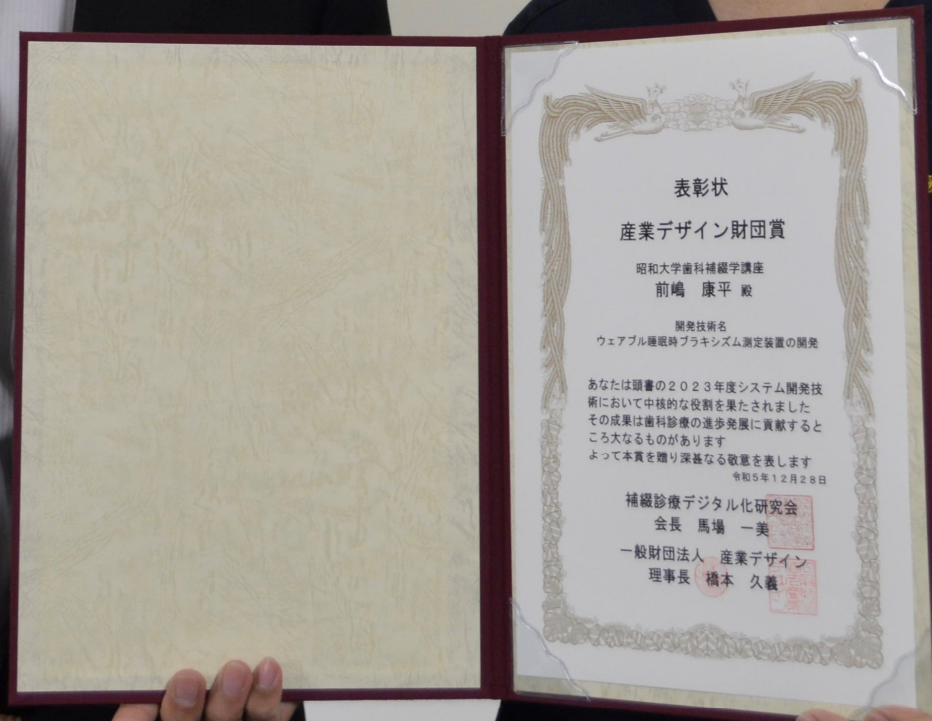 表彰状
産業デザイン財団賞
昭和大学歯科補綴学講座
前嶋　康平 殿
開発技術名
ウェアブル睡眠時ブラキシズム測定装置の開発
あなたは頭書の２０２３年度システム開発技
術において中核的な役割を果たされました
その成果は歯科診療の進歩発展に貢献すると
ころ大なるものがあります
よって本賞を贈り深甚なる敬意を表します
令和５年１２月２８日
補綴診療デジタル化研究会
会長　馬場　一美
一般財団法人　産業デザイン
理事長　橋本　久義